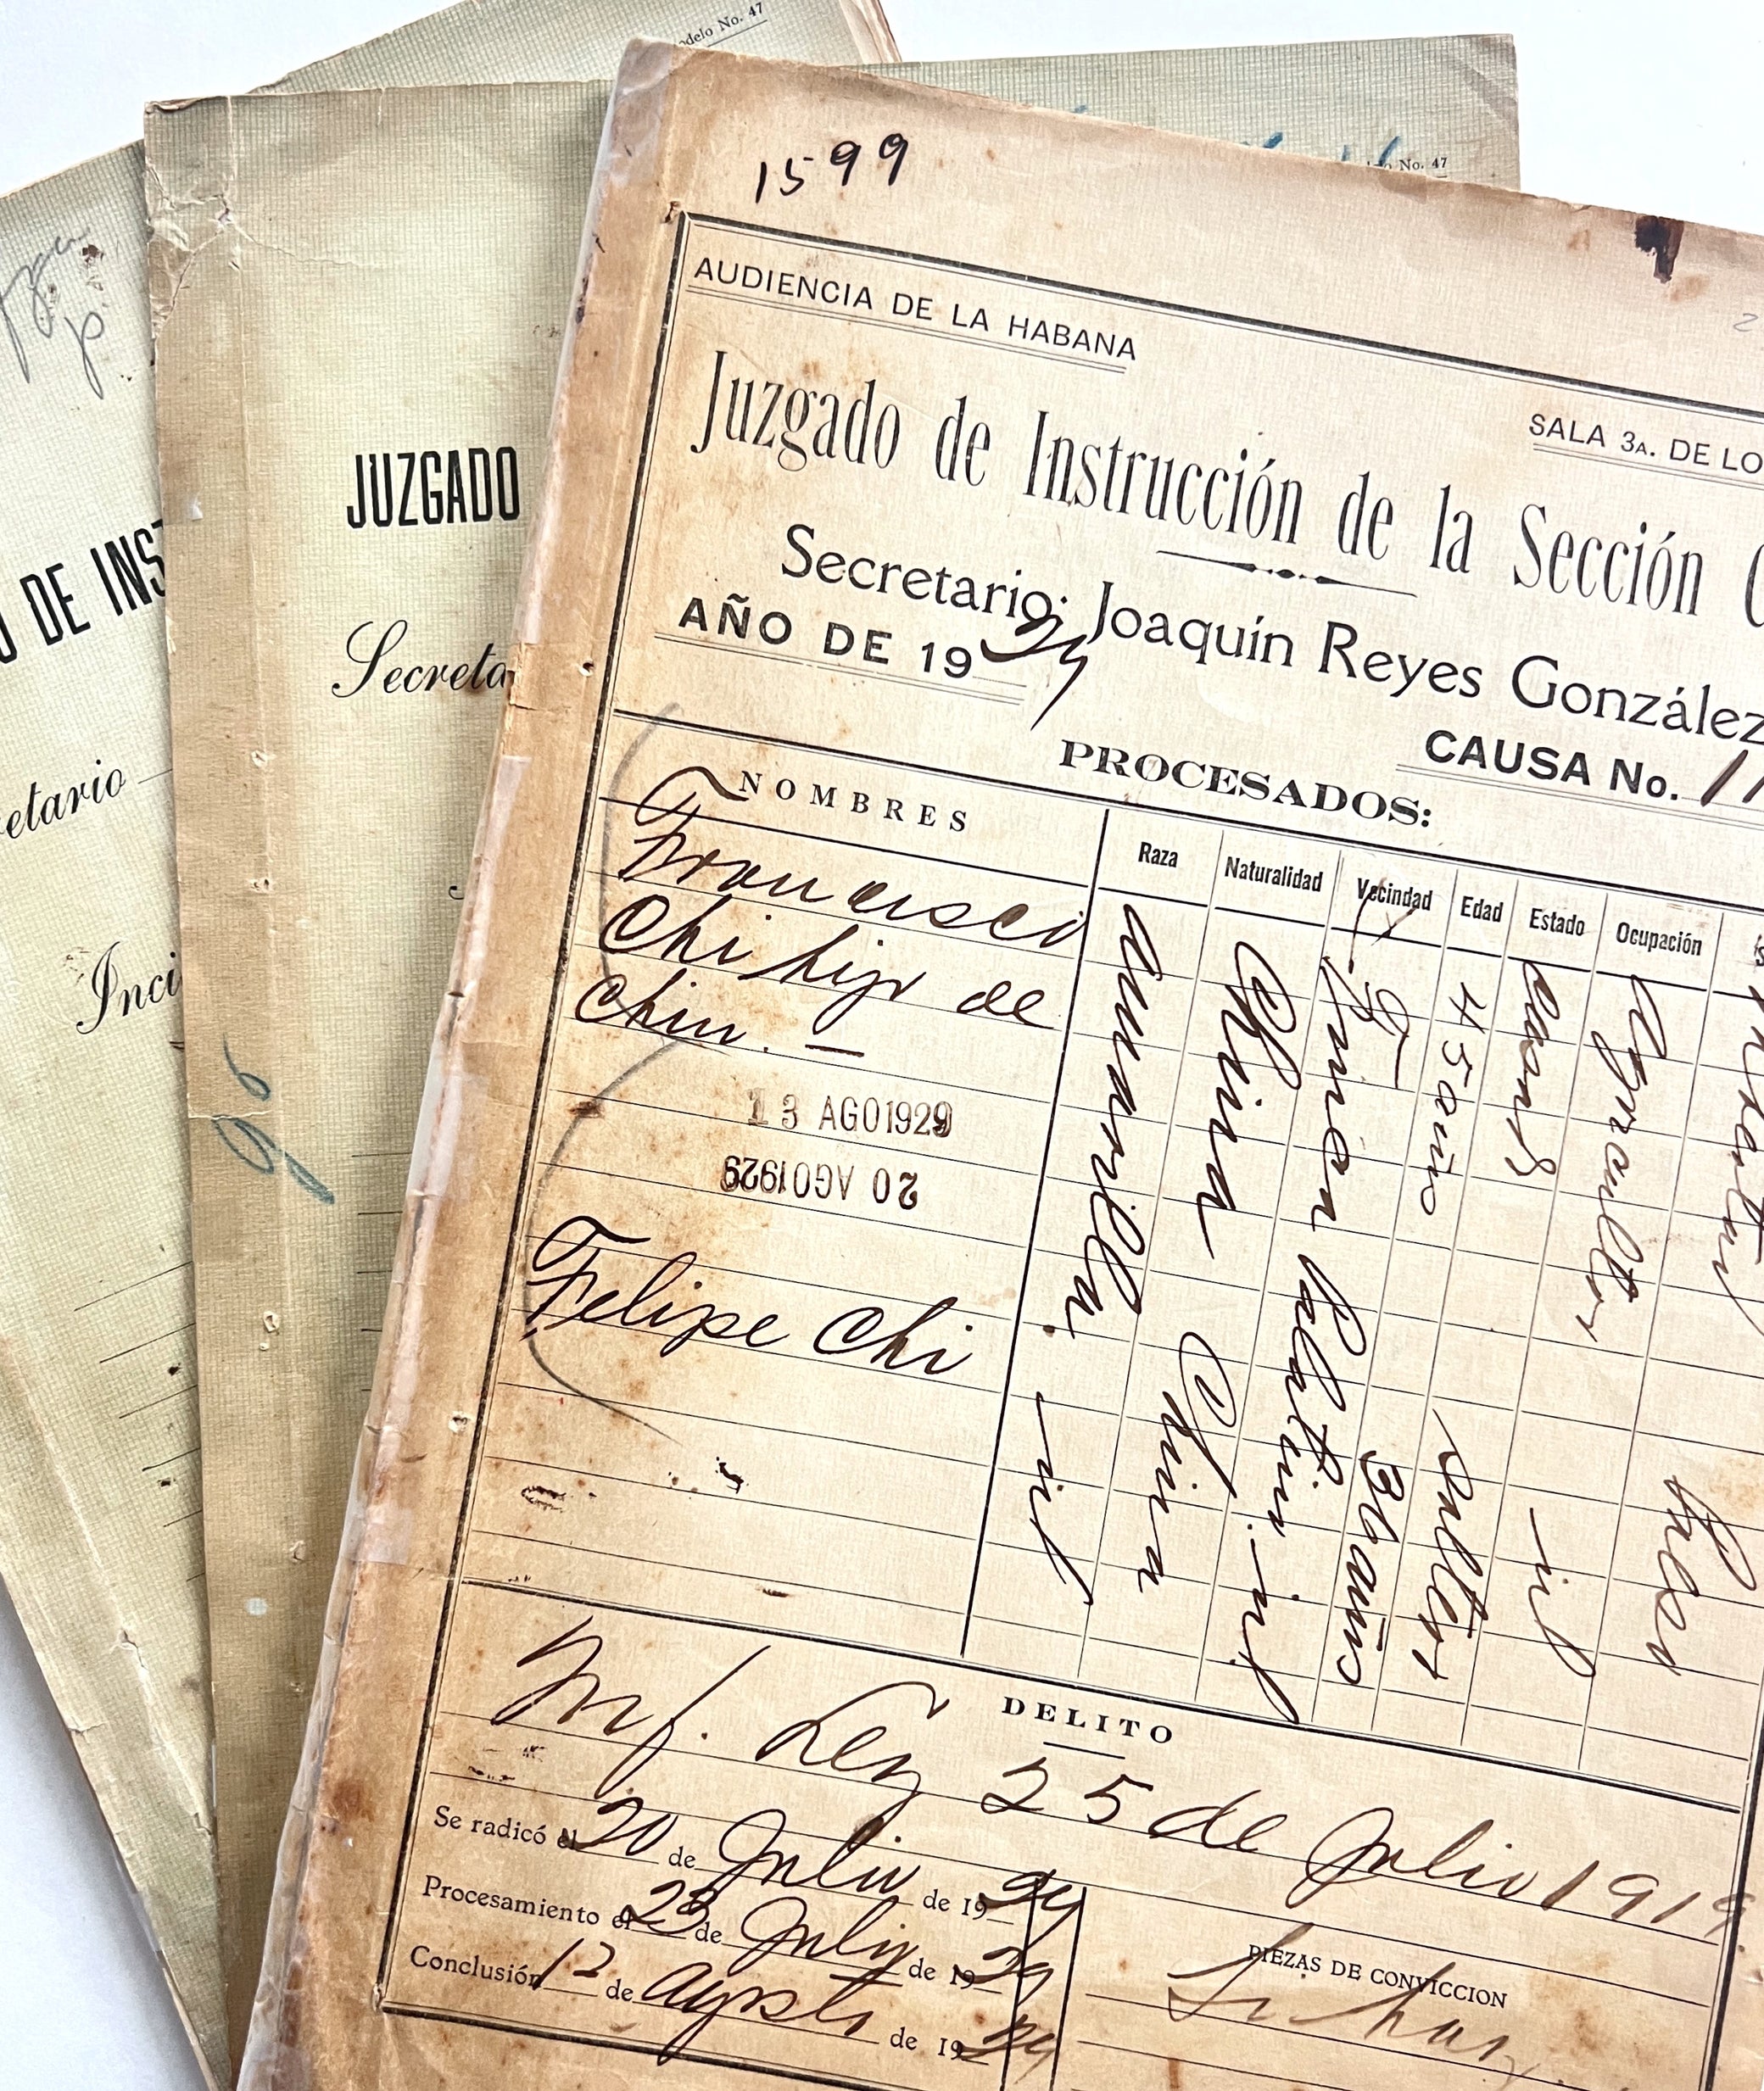 Modelo No. 47
No. 47
JUZGADO
DE INS
Secreta
etario
Inci
90
1599
AUDIENCIA DE LA HABANA
SALA 3A. DE LO
Juzgado de Instrucción de la Sección
Secretario: Joaquín Reyes González
AÑO DE 1929
CAUSA No. 11
PROCESADOS:
NOMBRES
Raza
Naturalidad
Vecindad
Edad
Estado
Ocupación
Francisco
Chi hijo de
Chin. —
amarilla.
China
45 años
13 AGO 1929
20 AGO 1929
Felipe Chi
China
soltero
DELITO
Inf. Ley 25 de Julio 1919
Se radicó el 20 de Julio de 1929
Procesamiento el 23 de Julio de 1929
Conclusión 12 de agosto de 1929
PIEZAS DE CONVICCION